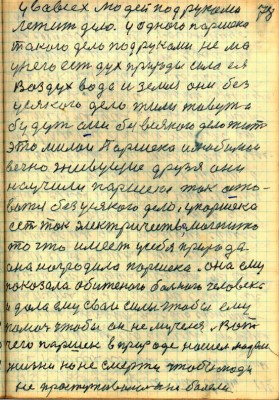 у всех людей под руками 73
лежит дело. у одного паршека
такого дело под руками не ма
у него ест дух природы сила ея
Воздух вода и земля они без
усякого дело жили живут и
будут они без всякого дела жить
это милой Паршека и любимои
вечно живущие друзя они
научили паршека так
без усякого дело, у паршека
ест ток электричество магнито
то что имеет у себя природа.
она наградила паршека. она ему
показала обиженого больного человека
и дала ему свои силы чтобы ему
помоч чтобы он не мучился. Вот
чего паршек в природе нашел
жизни на не смерти чтобы люди
не простуживались и не болели